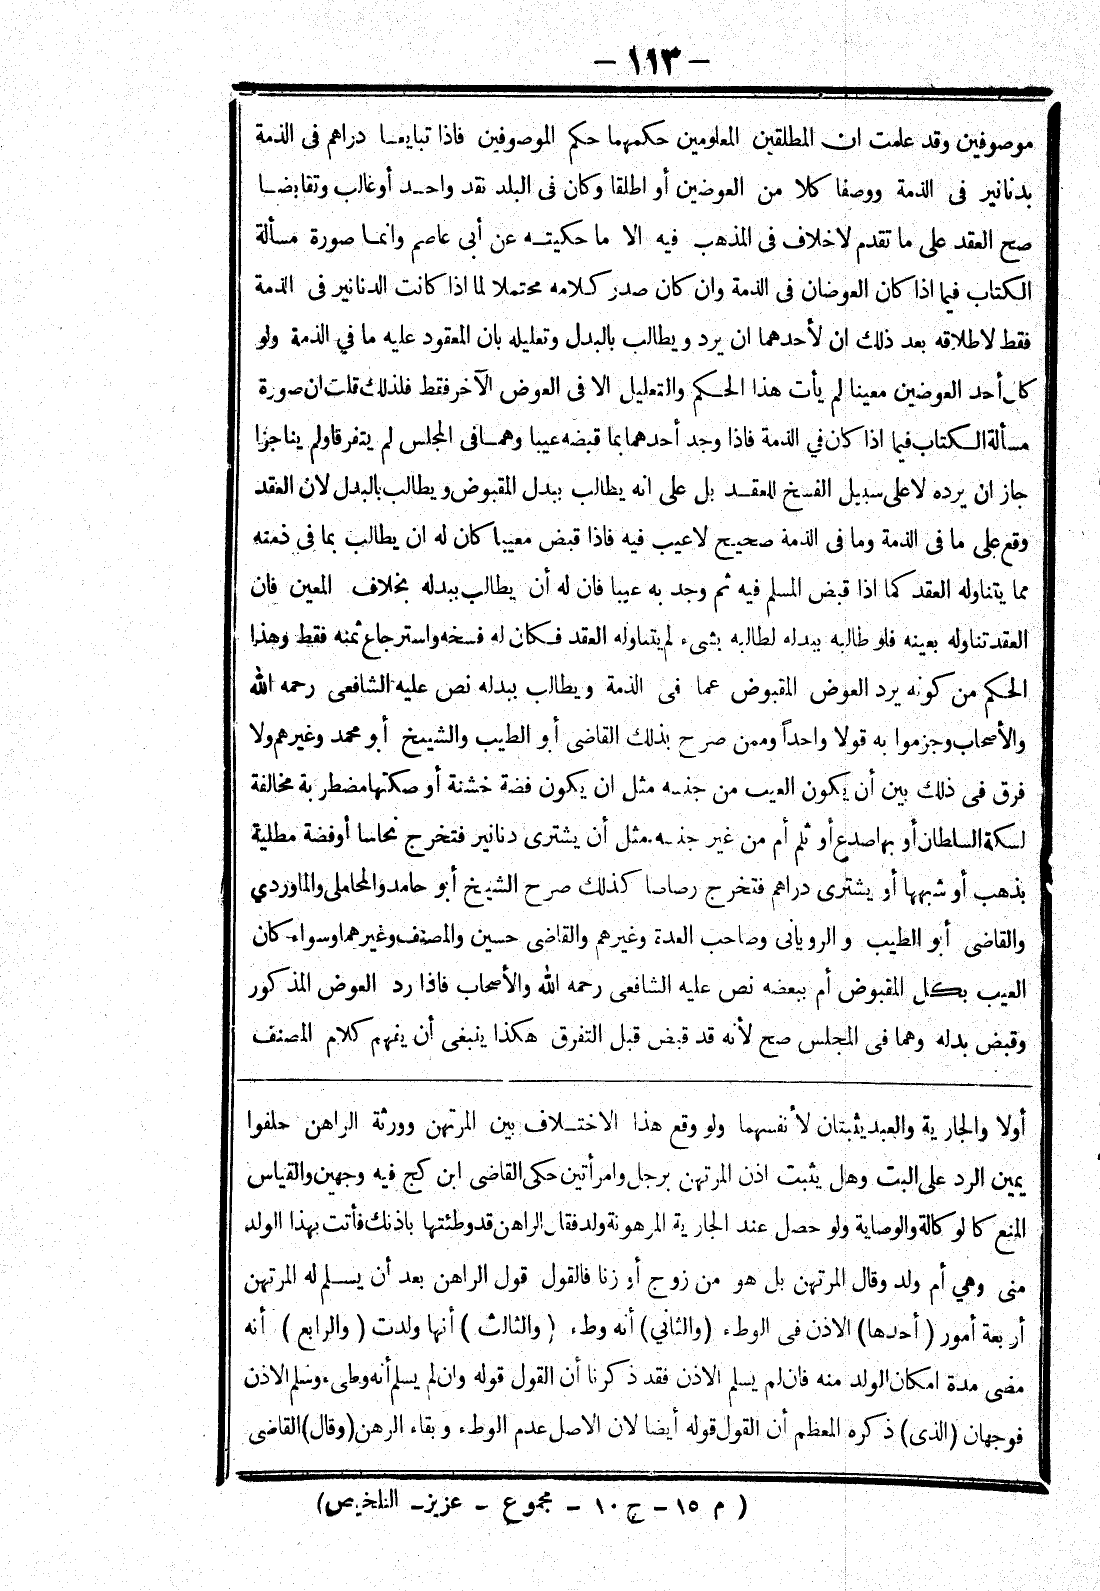 – ١١٣ –
موصوفين وقد علمت ان المطلقين المعلومين حكمهما حكم الموصوفين فاذا تبايعا دراهم فى الذمة
بدنانير فى الذمة ووصفا كلا من العوضين أو اطلقا وكان فى البلد نقد واحد أوغالب وتقابضا
صح العقد على ما تقدم لاخلاف فى المذهب فيه الا ما حكيته عن أبى عاصم وانما صورة مسألة
الكتاب فيما اذا كان العوضان فى الذمة وان كان صدر كلامه محتملا لما اذا كانت الدنانير فى الذمة
فقط لاطلاقه بعد ذلك ان لأحدهما ان يرد ويطالب بالبدل وتعليله بان المعقود عليه ما في الذمة ولو
كان أحد العوضين معينا لم يأت هذا الحكم والتعليل الا فى العوض الآخر فقط فلذلك قلت ان صورة
مسألة الكتاب فيما اذا كان في الذمة فاذا وجد أحدهما بما قبضه عيبا وهما فى المجلس لم يتفرقا ولم يناجزا
جاز ان يرده لاعلى سبيل الفسخ للعقد بل على انه يطالب ببدل المقبوض ويطالب بالبدل لان العقد
وقع على ما فى الذمة وما فى الذمة صحيح لاعيب فيه فاذا قبض معيبا كان له ان يطالب بما فى ذمته
مما يتناوله العقد كما اذا قبض المسلم فيه ثم وجد به عيبا فان له أن يطالب ببدله بخلاف المعين فان
العقد تناوله بعينه فلو طالبه ببدله لطالبه بشىء لم يتناوله العقد فكان له فسخه واسترجاع ثمنه فقط وهذا
الحكم من كونه يرد العوض المقبوض عما فى الذمة ويطالب ببدله نص عليه الشافعى رحمه الله
والأصحاب وجزموا به قولا واحداً وممن صرح بذلك القاضى أبو الطيب والشيخ أبو محمد وغيرهم ولا
فرق فى ذلك بين أن يكون العيب من جنسه مثل ان يكون فضة خشنة أو صكتها مضطربة مخالفة
لسكة السلطان أو بها صدع أو ثلم أم من غير جنسه مثل أن يشترى دنانير فتخرج نحاسا أوفضة مطلية
بذهب أو شبهها أو يشترى دراهم فتخرج رصاصا كذلك صرح الشيخ أبو حامد والمحاملى والماوردي
والقاضى أبو الطيب والرويانى وصاحب العدة وغيرهم والقاضى حسين والمصنف وغيرهما وسواء كان
العيب بكل المقبوض أم ببعضه نص عليه الشافعى رحمه الله والأصحاب فاذا رد العوض المذكور
وقبض بدله وهما فى المجلس صح لأنه قد قبض قبل التفرق هكذا ينبغى أن يفهم كلام المصنف
أولا والجارية والعبد يثبتان لأنفسهما ولو وقع هذا الاختلاف بين المرتهن وورثة الراهن حلفوا
يمين الرد على البت وهل يثبت اذن المرتهن برجل وامرأتين حكى القاضى ابن كج فيه وجهين والقياس
المنع كا لوكالة والوصاية ولو حصل عند الجارية المرهونة ولد فقال الراهن قد وطئتها باذنك فأتت بهذا الولد
منى وهي أم ولد وقال المرتهن بل هو من زوج أو زنا فالقول قول الراهن بعد أن يسلم له المرتهن
أربعة أمور (أحدها) الاذن فى الوطء (والثاني) أنه وطء (والثالث) أنها ولدت (والرابع) أنه
مضى مدة امكان الولد منه فان لم يسلم الاذن فقد ذكرنا أن القول قوله وان لم يسلم أنه وطىء وسلم الاذن
فوجهان (الذى) ذكره المعظم أن القول قوله أيضا لان الاصل عدم الوطء وبقاء الرهن (وقال) القاضى
(م ١٥ – ج ١٠ – مجموع – عزيز – التلخيص)